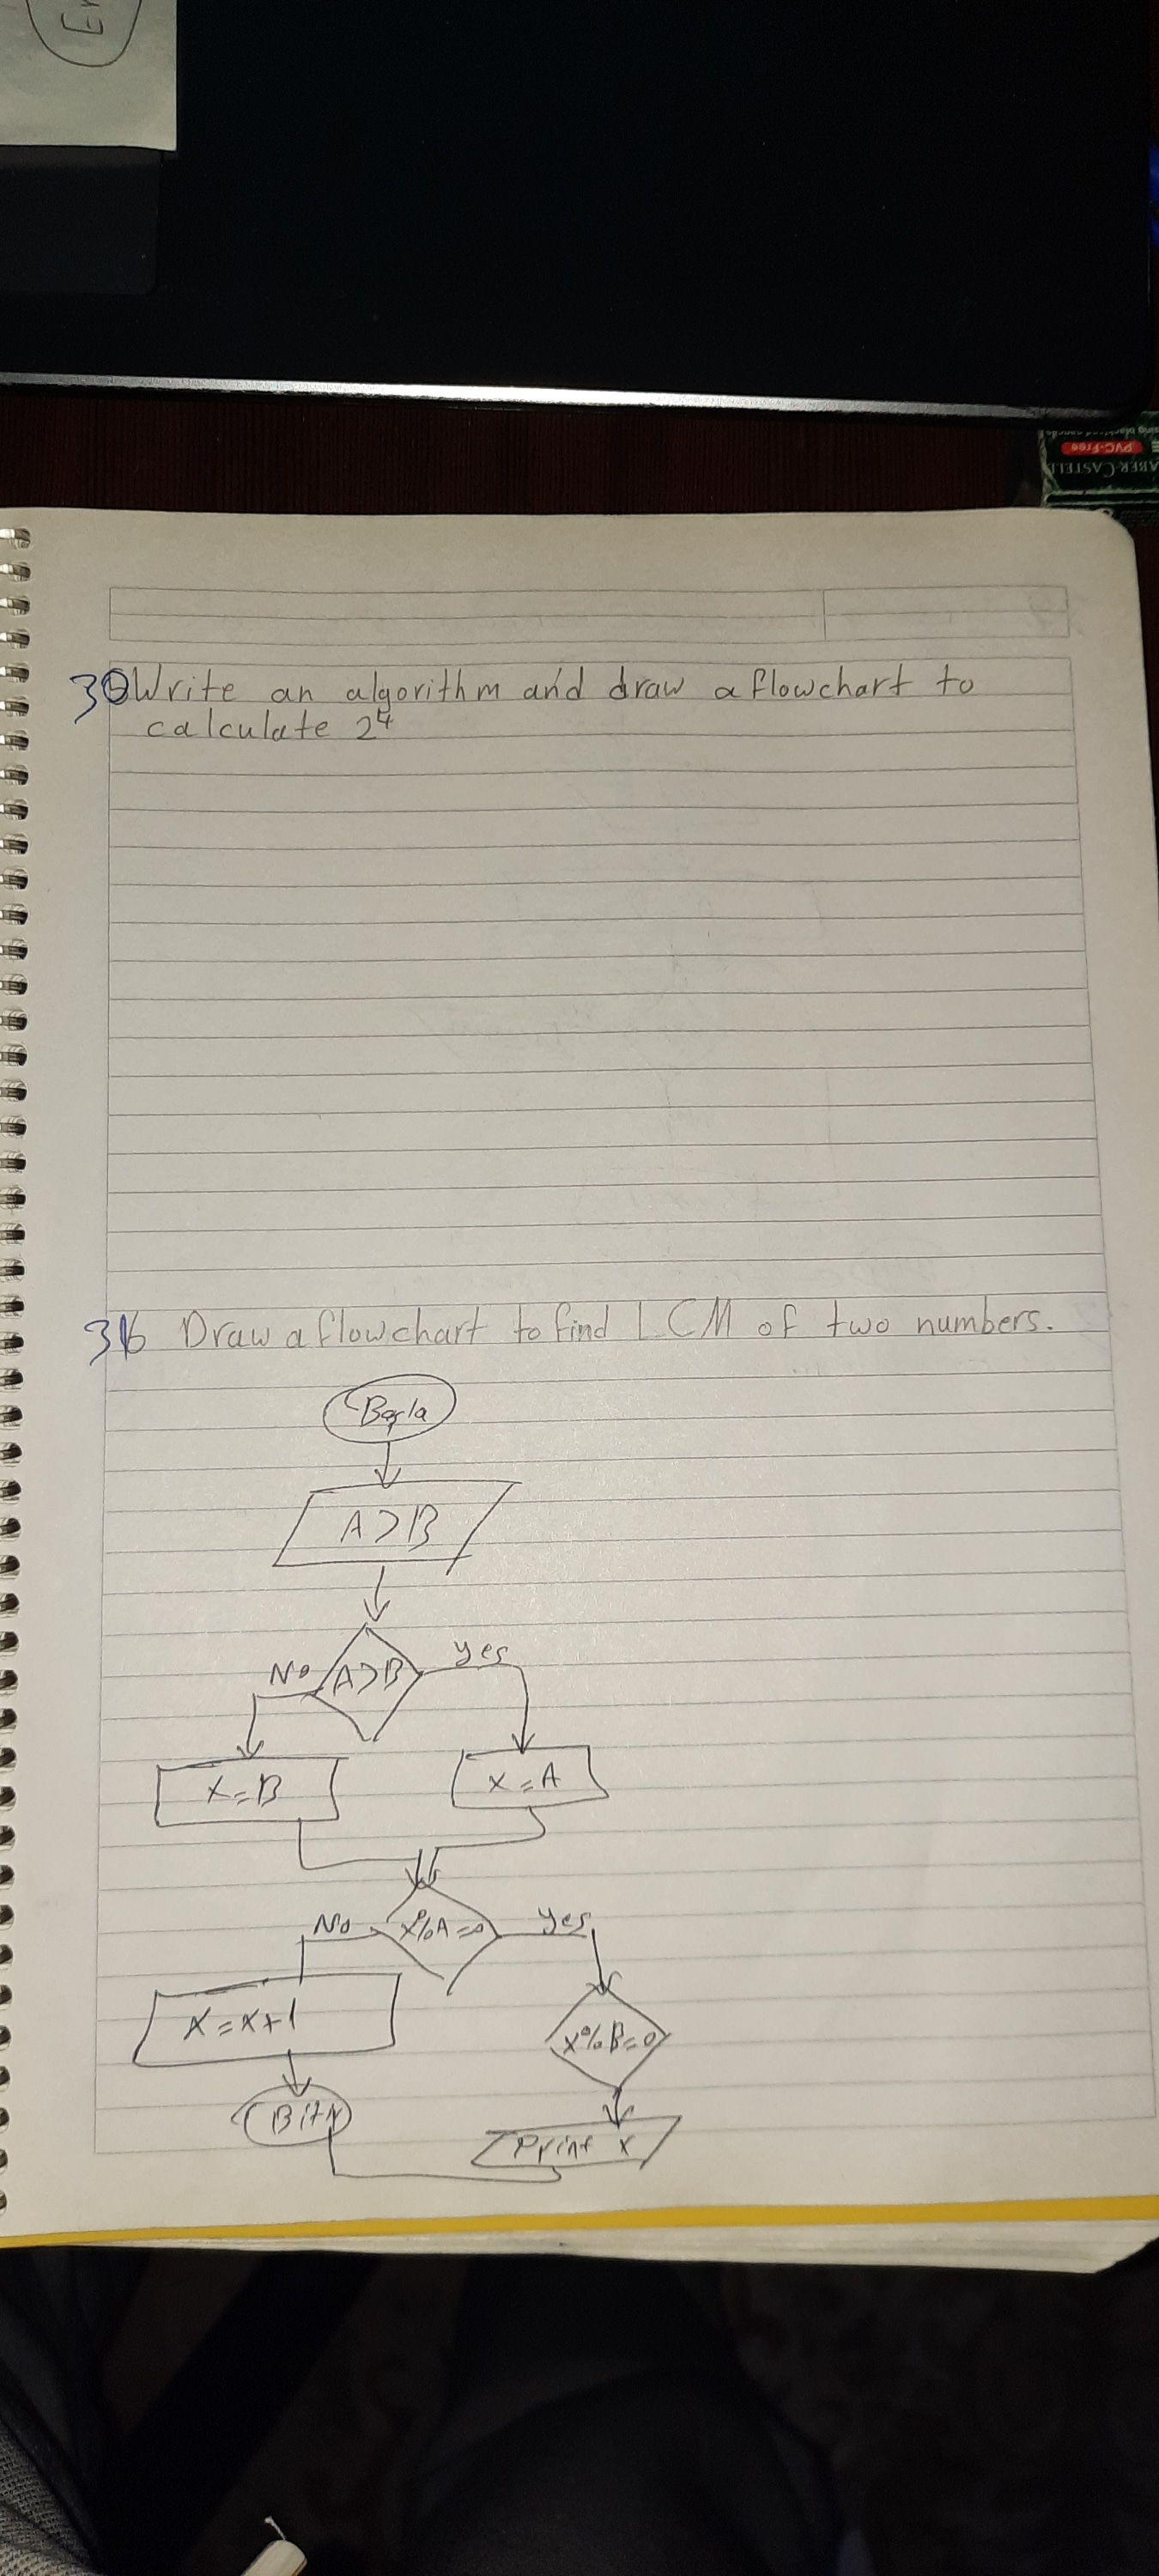 En
PVC-Free
ABER-CASTELL
30 Write an algorithm and draw a flowchart to
calculate 2⁴
316 Draw a flowchart to find LCM of two numbers.
Başla
A>B
No A>B yes
X=B
x=A
No x%A=0 yes
X=x+1
x%B=0
Bitir
Print x